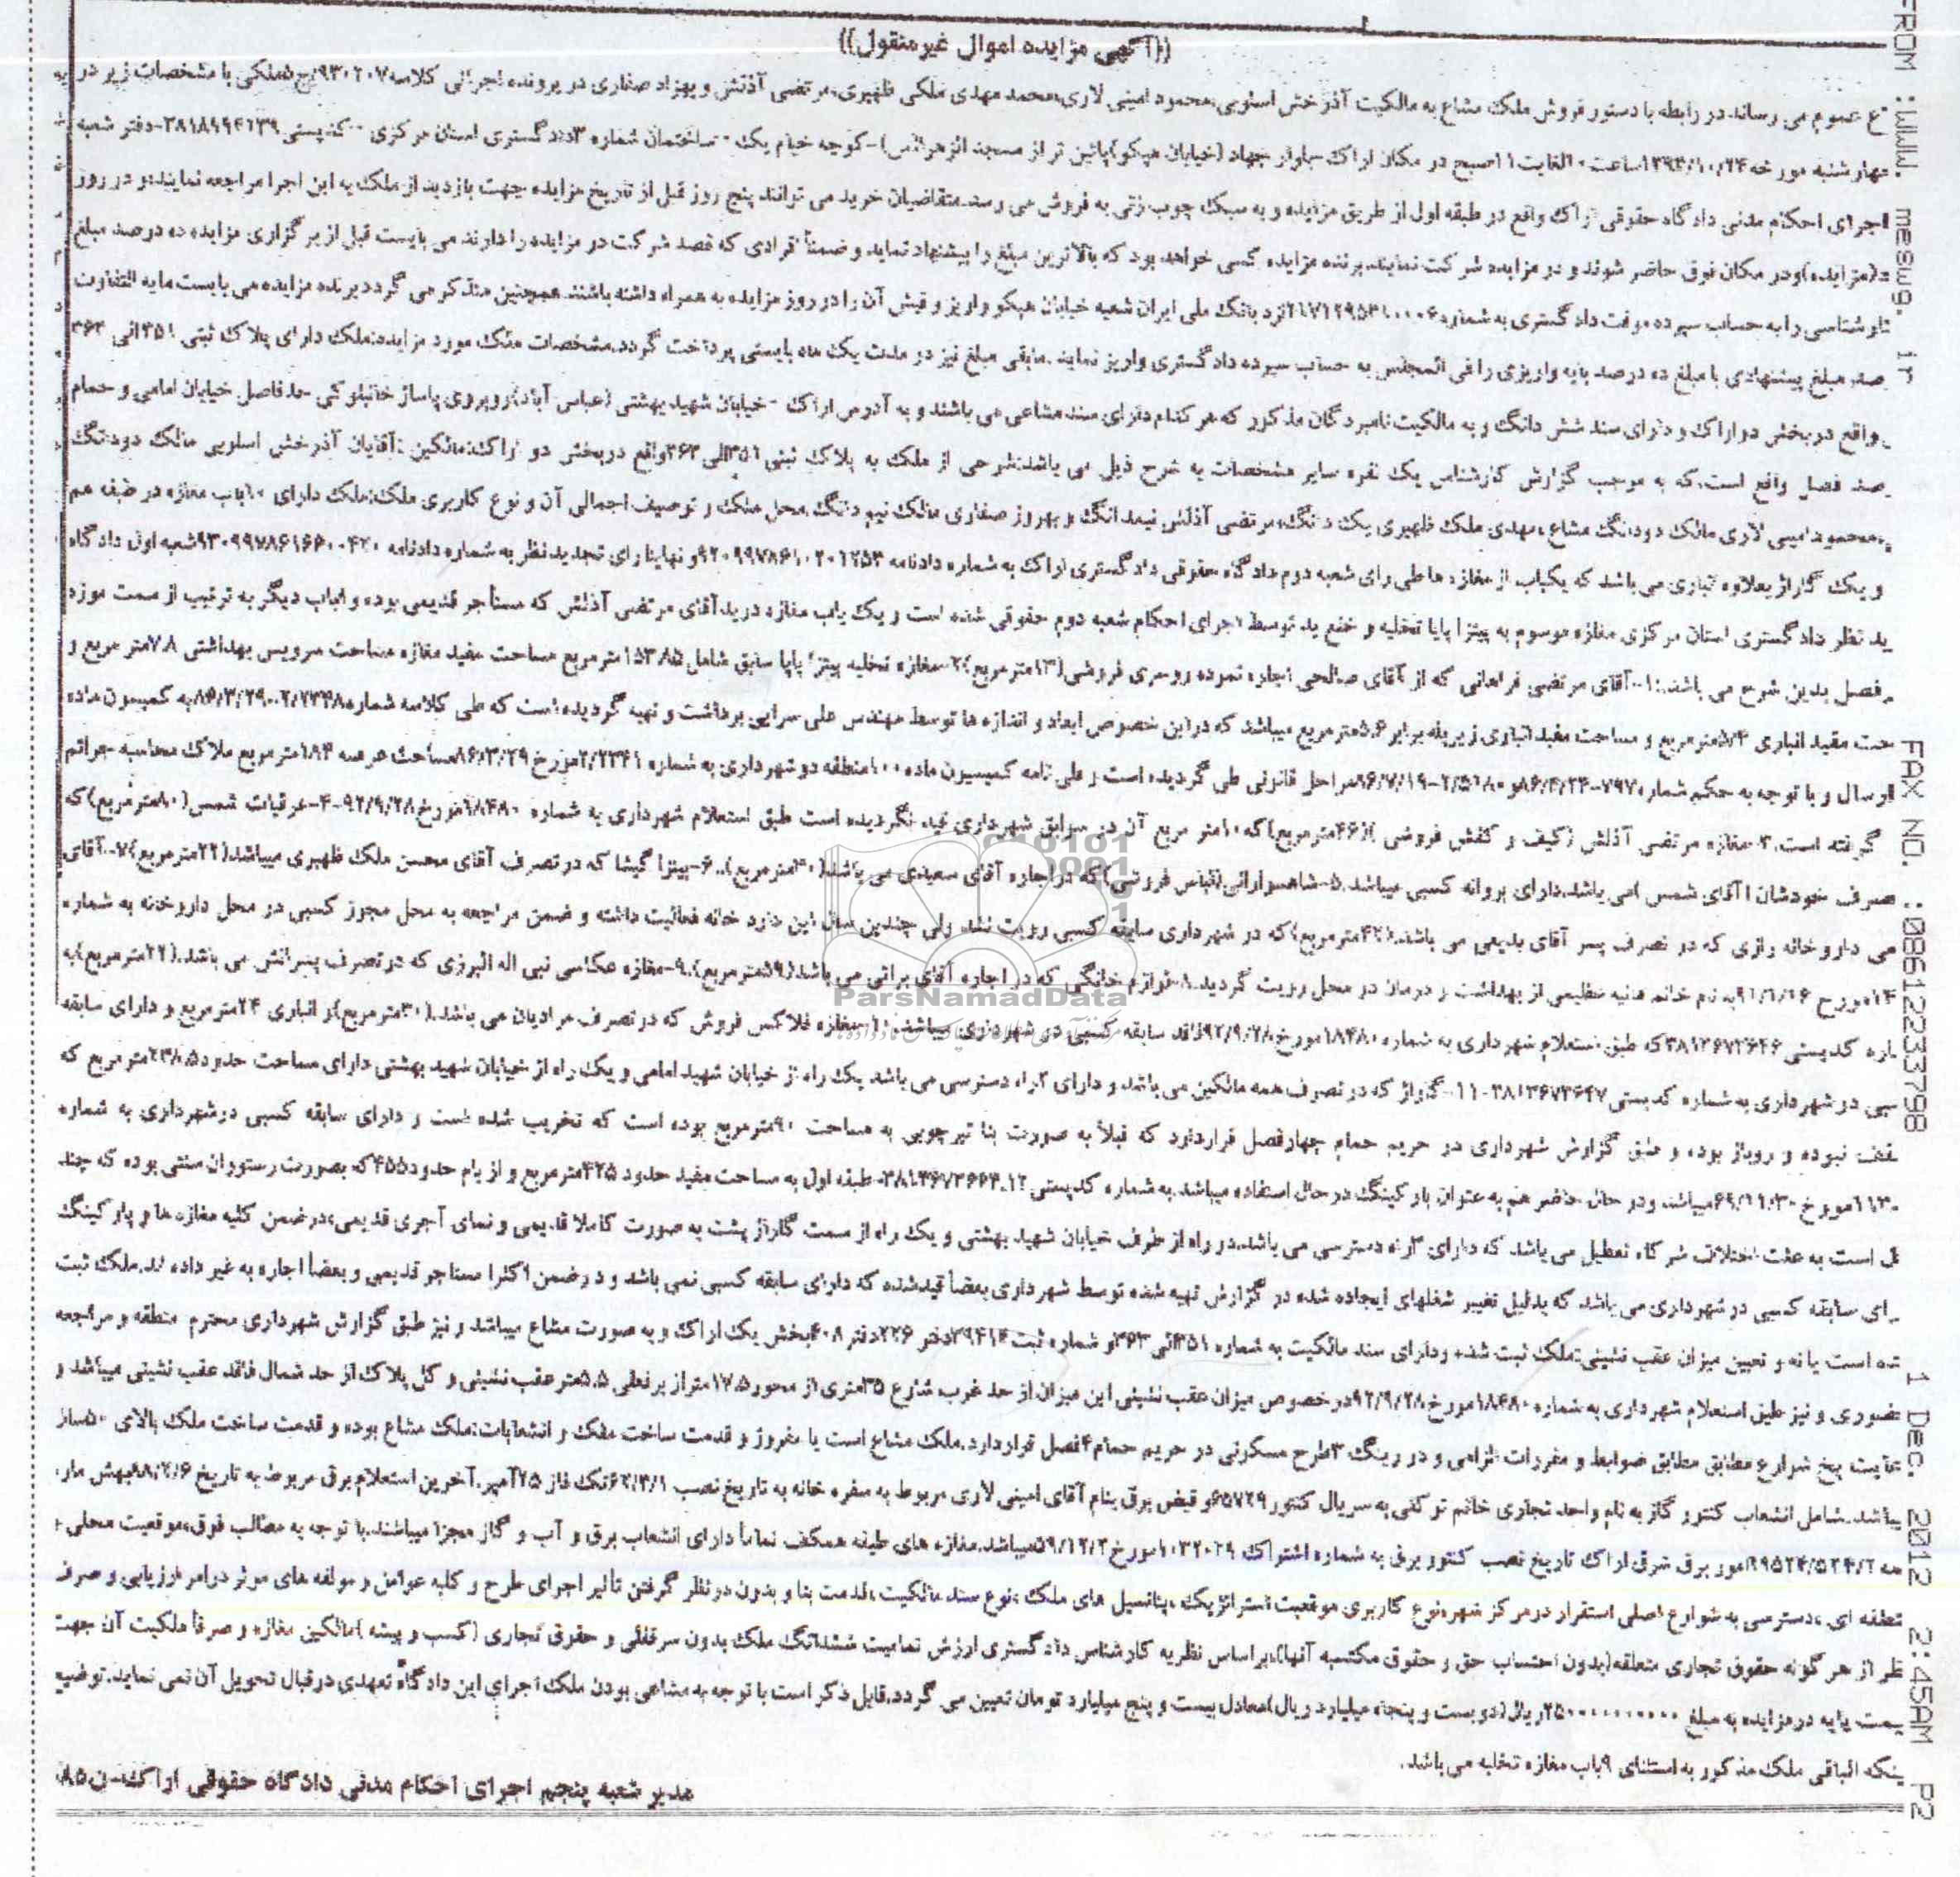 ((آگهی مزایده اموال غیرمنقول))
ع عموم می رساند در رابطه با دستور فروش ملک مشاع به مالکیت آذرخش اسلوبی،محمود امینی لاری،محمد مهدی ملکی ظهیری،مرتضی آذنش و بهزاد صفاری در پرونده اجرائی کلاسه ملکی با مشخصات زیر در
چهارشنبه مورخه ۱۳۹۳/۱۰/۲۴ساعت ۱۰الغایت۱۱صبح در مکان اراک-بلوار جهاد (خیابان هپکو)پائین تر از مسجد الزهرا(س)-کوچه خیام یک-ساختمان شماره ۳دادگستری استان مرکزی -کدپستی دفتر شعبه
اجرای احکام مدنی دادگاه حقوقی اراک واقع در طبقه اول از طریق مزایده و به سبک چوب زنی به فروش می رسد.متقاضیان خرید می توانند پنج روز قبل از تاریخ مزایده جهت بازدید از ملک به این اجرا مراجعه نمایند،و در روز
(مزایده)ودر مکان فوق حاضر شوند و در مزایده شرکت نمایند.برنده مزایده کسی خواهد بود که بالاترین مبلغ را پیشنهاد نماید و ضمناً افرادی که قصد شرکت در مزایده را دارند می بایست قبل از برگزاری مزایده ده درصد مبلغ
کارشناسی را به حساب سپرده موقت دادگستری به شماره نزد بانک ملی ایران شعبه خیابان هپکو واریز و فیش آن را در روز مزایده به همراه داشته باشند.همچنین متذکر می گردد برنده مزایده می بایست مابه التفاوت
صد مبلغ پیشنهادی با مبلغ ده درصد پایه واریزی را فی المجلس به حساب سپرده دادگستری واریز نماید.مابقی مبلغ نیز در مدت یک ماه بایستی پرداخت گردد.مشخصات ملک مورد مزایده:ملک دارای پلاک ثبتی ۳۵۱الی ۳۶۳
واقع در بخش دو اراک و دارای سند شش دانگ و به مالکیت نامبردگان مذکور که هر کدام دارای سند مشاعی می باشند و به آدرس اراک -خیابان شهید بهشتی (عباس آباد)روبروی پاساژ خانبلوکی -حد فاصل خیابان امامی و حمام
فصل واقع است،که به موجب گزارش کارشناس یک نفره سایر مشخصات به شرح ذیل می باشد:شرحی از ملک به پلاک ثبتی ۳۵۱الی ۳۶۳واقع دربخش دو اراک:مالکین :آقایان آذرخش اسلوبی مالک دودانگ
،محمود امینی لاری مالک دودانگ مشاع ،مهدی ملک ظهیری یک دانگ،مرتضی آذلش نیمدانگ و بهروز صفاری مالک نیم دانگ.محل ملک و توصیف اجمالی آن و نوع کاربری ملک:ملک دارای ۱۰باب مغازه در طبقه هم
و یک گاراژ بعلاوه انباری می باشد که یکباب از مغازه ها طی رای شعبه دوم دادگاه حقوقی دادگستری اراک به شماره دادنامه و نهایتا رای تجدید نظر به شماره دادنامه شعبه اول دادگاه
ید نظر دادگستری استان مرکزی مغازه موسوم به پیتزا پاپا تخلیه و خلع ید توسط اجرای احکام شعبه دوم حقوقی شده است و یک باب مغازه درید آقای مرتضی آذلش که مستأجر قدیمی بوده و ۸باب دیگر به ترتیب از سمت موزه
فصل بدین شرح می باشند:۱-آقای مرتضی فراهانی که از آقای صالحی اجاره نموده روسری فروشی(۱۳مترمربع)۲-مغازه تخلیه پیتزا پاپا سابق شامل۱۵۳.۸۵مترمربع مساحت مفید مغازه مساحت سرویس بهداشتی ۷.۸متر مربع و
حت مفید انباری مترمربع و مساحت مفید انباری زیرپله برابر ۵.۶مترمربع میباشد که دراین خصوص ابعاد و اندازه ها توسط مهندس علی سرایی برداشت و تهیه گردیده است که طی کلاسه شماره به کمیسیون ماده
ارسال و با توجه به حکم شماره مراحل قانونی طی گردیده است و طی نامه کمیسیون ماده ۱۰۰منطقه دو شهرداری به شماره ۲/۲۳۴۱مورخ ۸۶/۳/۲۹مساحت عرصه ۱۸۴مترمربع ملاک محاسبه جرائم
گرفته است.۳-مغازه مرتضی آذلش (کیف و کفش فروشی )(۴۶مترمربع)که ۱۰متر مربع آن در سوابق شهرداری قید نگردیده است طبق استعلام شهرداری به شماره ۱۸۴۸۰مورخ۹۲/۹/۲۸-۴-عرقیات شمس(۸۰مترمربع)که
صرف خودشان (آقای شمس )می باشد.دارای پروانه کسبی میباشد.۵-شاهسوارانی(لباس فروشی)که در اجاره آقای سعیدی می باشد(۴۰مترمربع).۶-پیتزا گیشا که در تصرف آقای محسن ملک ظهیری میباشد(۲۲مترمربع)۷-آقای
می داروخانه رازی که در تصرف پسر آقای بدیعی می باشد.(۴۲مترمربع)که در شهرداری سابقه کسبی رویت نشد ولی چندین سال این دارو خانه فعالیت داشته و ضمن مراجعه به محل مجوز کسبی در محل داروخانه به شماره
مورخ ۹۱/۱/۱۶به نام خانم هانیه عظیمی از بهداشت و درمان در محل رویت گردید.۸-لوازم خانگی که در اجاره آقای براتی می باشد(۵۹مترمربع).۹-مغازه عکاسی نبی اله البرزی که درتصرف پسرانش می باشد.(۲۲مترمربع)به
اره کدپستی۳۸۱۳۶۷۳۶۴۶که طبق استعلام شهرداری به شماره ۱۸۴۸۰مورخ۹۲/۹/۲۸فاقد سابقه کسبی در شهرداری میباشد.۱۰-مغازه فلاکس فروش که درتصرف مرادیان می باشد.(۳۰مترمربع)و انباری ۲۴مترمربع و دارای سابقه
سبی در شهرداری به شماره کدپستی ۳۸۱۳۶۷۳۶۴۷-۱۱-گاراژ که در تصرف همه مالکین می باشد و دارای ۲راه دسترسی می باشد یک راه از خیابان شهید امامی و یک راه از خیابان شهید بهشتی دارای مساحت حدود۲۳۸.۵متر مربع که
قف نبوده و روباز بوده و طبق گزارش شهرداری در حریم حمام چهارفصل قراردارد که قبلاً به صورت بنا تیرچوبی به مساحت ۹۰مترمربع بوده است که تخریب شده است و دارای سابقه کسبی درشهرداری به شماره
مورخ ۶۹/۱۱/۳۰میباشد ودر حال حاضر هم به عنوان پارکینگ در حال استفاده میباشد.به شماره کدپستی ۳۸۱۳۶۷۳۶۶۴.۱۲-طبقه اول به مساحت مفید حدود ۴۲۵مترمربع و از بام حدود۴۵۵که بصورت رستوران سنتی بوده که چند
ل است به علت اختلاف شرکاء تعطیل می باشد که دارای ۲راه دسترسی می باشد.در راه از طرف خیابان شهید بهشتی و یک راه از سمت گاراژ پشت به صورت کاملا قدیمی و نمای آجری قدیمی،درضمن کلیه مغازه ها و پارکینگ
رای سابقه کسبی در شهرداری می باشد که بدلیل تغییر شغلهای ایجاده شده در گزارش تهیه شده توسط شهرداری بعضاً قیدشده که دارای سابقه کسبی نمی باشد و درضمن اکثرا مستاجر قدیمی و بعضاً اجاره به غیر داده اند.ملک ثبت
شده است یا نه و تعیین میزان عقب نشینی:ملک ثبت شده ودارای سند مالکیت به شماره ۳۵۱الی ۳۶۳و شماره ثبت ۳۹۴۱۴دفتر ۲۲۶دفتر ۴۰۸بخش یک اراک و به صورت مشاع میباشد و نیز طبق گزارش شهرداری محترم منطقه و مراجعه
حضوری و نیز طبق استعلام شهرداری به شماره ۱۸۴۸۰مورخ ۹۲/۹/۲۸درخصوص میزان عقب نشینی این میزان از حد غرب شارع ۳۵متری از محور۱۷.۵متراز برفعلی ۵.۵متر عقب نشینی و کل پلاک از حد شمال فاقد عقب نشینی میباشد و
عایت پخ شوارع مطابق مطابق ضوابط و مقررات الزامی و در رینگ ۳طرح مسکونی در حریم حمام۴فصل قراردارد.ملک مشاع است یا مفروز و قدمت ساخت ملک و انشعابات:ملک مشاع بوده و قدمت ساخت ملک بالای ۵۰سال
یباشد.شامل انشعاب کنتور گاز به نام واحد تجاری خانم ترکنی به سریال کنتور ۶۵۷۲۹و قبض برق بنام آقای امینی لاری مربوط به سفره خانه به تاریخ نصب ۶۲/۳/۱تک فاز ۲۵آمپر.آخرین استعلام برق مربوط به تاریخ ۸۸/۲/۶بهش مار
امور برق شرق اراک تاریخ نصب کنتور برق به شماره اشتراک مورخ ۵۹/۱۲/۲میباشد.مغازه های طبقه همکف تماماً دارای انشعاب برق و آب و گاز مجزا میباشند.با توجه به مطالب فوق،موقعیت محلی و
نطقه ای ،دسترسی به شوارع اصلی استقرار درمرکز شهر،نوع کاربری موقعیت استراتژیک ،پتانسیل های ملک ،نوع سند مالکیت ،قدمت بنا و بدون درنظر گرفتن تأثیر اجرای طرح و کلیه عوامل و مولفه های موثر درامر ارزیابی و صرف
ظر از هر گونه حقوق تجاری متعلقه(بدون احتساب حق و حقوق مکتسبه آنها)،براساس نظریه کارشناس دادگستری ارزش تمامیت ششدانگ ملک بدون سرقفلی و حقوق تجاری (کسب و پیشه )مالکین مغازه و صرفاً ملکیت آن جهت
یمت پایه درمزایده به مبلغ ۲۵۰۰۰۰۰۰۰۰۰۰ریال(دویست و پنجاه میلیارد ریال)معادل بیست و پنج میلیارد تومان تعیین می گردد.قابل ذکر است با توجه به مشاعی بودن ملک اجرای این دادگاه تعهدی درقبال تحویل آن نمی نماید.توضیح
ینکه الباقی ملک مذکور به استثنای ۹باب مغازه تخلیه می باشد.
مدیر شعبه پنجم اجرای احکام مدنی دادگاه حقوقی اراک-ن۸۵
FROM :WWW. meswg. ir FAX NO. :08612233798 1 Dec. 2012 2:45AM P2
ParsNamadData